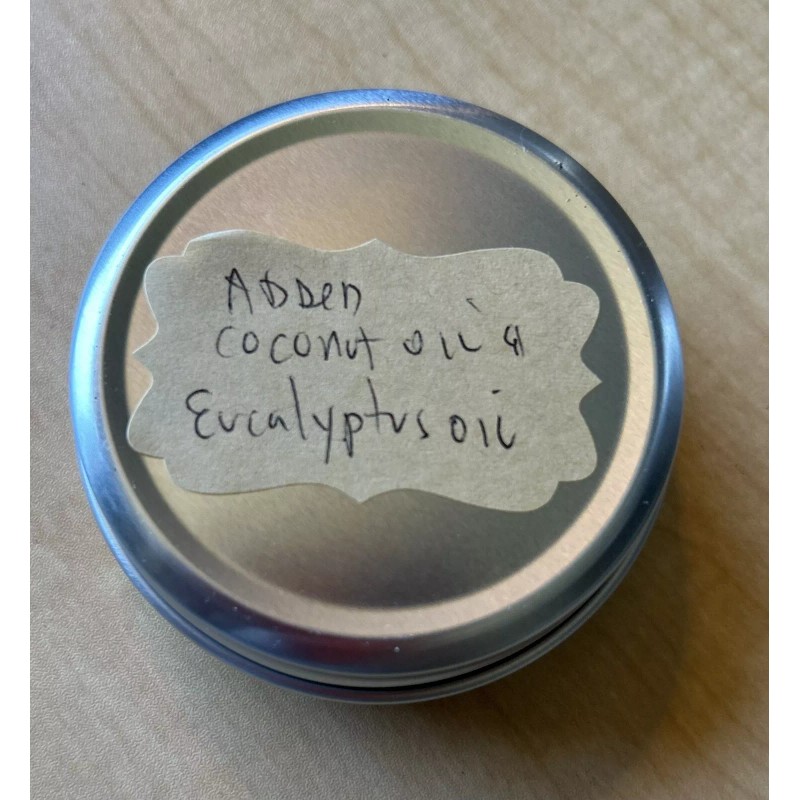 ADDED
coconut oil &
Eucalyptus oil